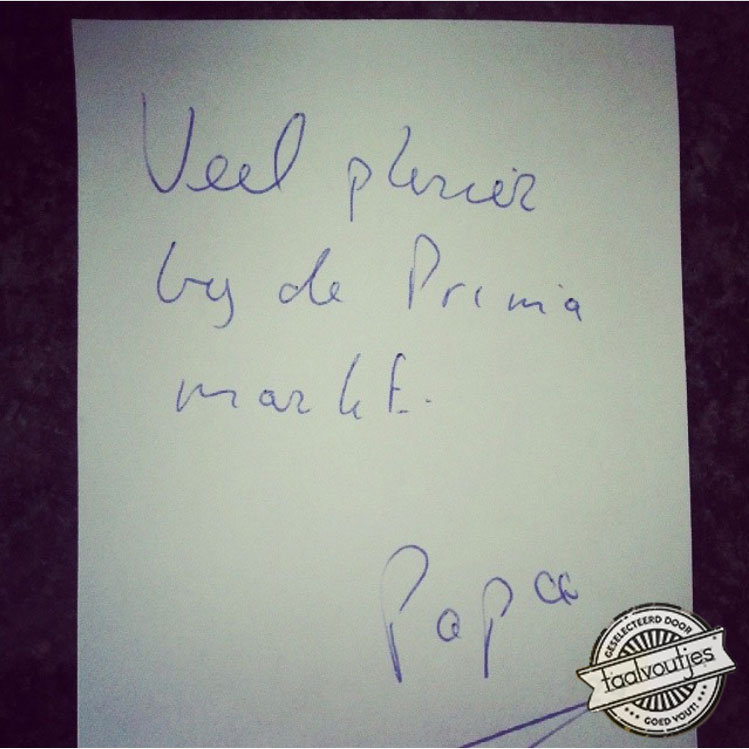 Veel plezier
by de Prima
markt.
Papa
GESELECTEERD DOOR
taalvoutjes
GOED VOUT!